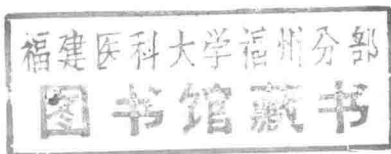 福建医科大学福州分部
图书馆藏书